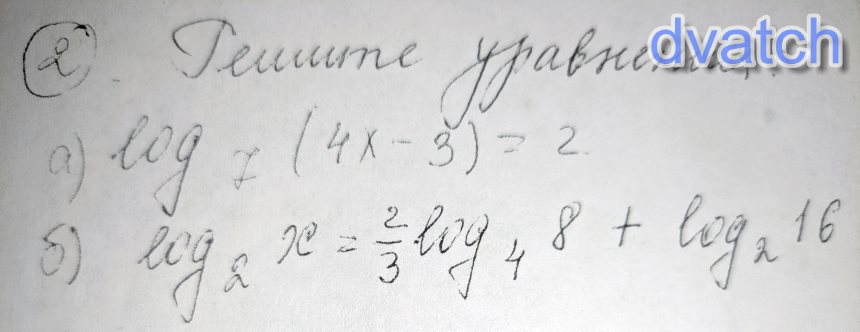 2. Решите уравнения: dvatch
а) log₇ (4x - 3) = 2.
б) log₂ x = 2/3 log₄ 8 + log₂ 16